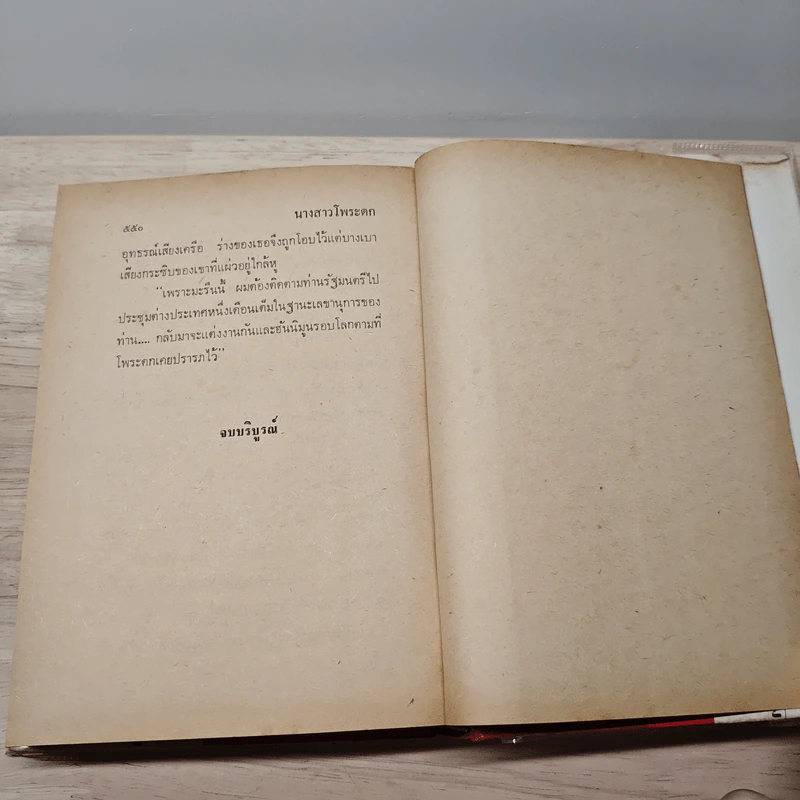 ๕๕๐
นางสาวโพระดก
อุทธรณ์เสียงเครือ ร่างของเธอจึงถูกโอบไว้แต่บางเบา
เสียงกระซิบของเขาที่แผ่วอยู่ใกล้หู
"เพราะมะรืนนี้ ผมต้องติดตามท่านรัฐมนตรีไป
ประชุมต่างประเทศหนึ่งเดือนเต็มในฐานะเลขานุการของ
ท่าน.... กลับมาจะแต่งงานกันและฮันนิมูนรอบโลกตามที่
โพระดกเคยปรารภไว้"
จบบริบูรณ์